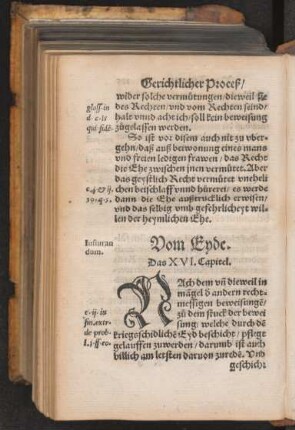 Gerichtlicher Proceß/
wider solche vermütungen/dieweil sie
des Rechten/vnd vom Rechten seind/
halt vnnd acht ich/soll kein beweisung
zůgelassen werden.
So ist vor disem auch nit zu vber-
gehn/daß auß beiwonung eins mans
vnd freien ledigen frawen/das Recht
die Ehe zwischen jnen vermütet. Aber
das geystlich Recht vermütet vorhin
ein beischlaff vnnd hürerei/es werde
dann die Ehe außtrucklich erwisen/
vnd das selbig vmb gefehrlicheyt wil-
len der heymlichen Ehe.
gloss. in
d. c. is
qui fide.
Iusiuran
dum.
Vom Eyde.
Das XVI. Capitel.
NAch dem vn̄ dieweil in
mägel d andern recht-
messigen beweisungē/
zů dem stuck der bewei
sung/welche durch dē
kriegsschidlichē Eyd beschicht/pflegt
gelauffen zuwerden/darumb ist auch
billich am letsten daruon zuredē. Vnd
geschicht
c. ij. in
fin. extr.
de prob.
l. j. ff. eo.